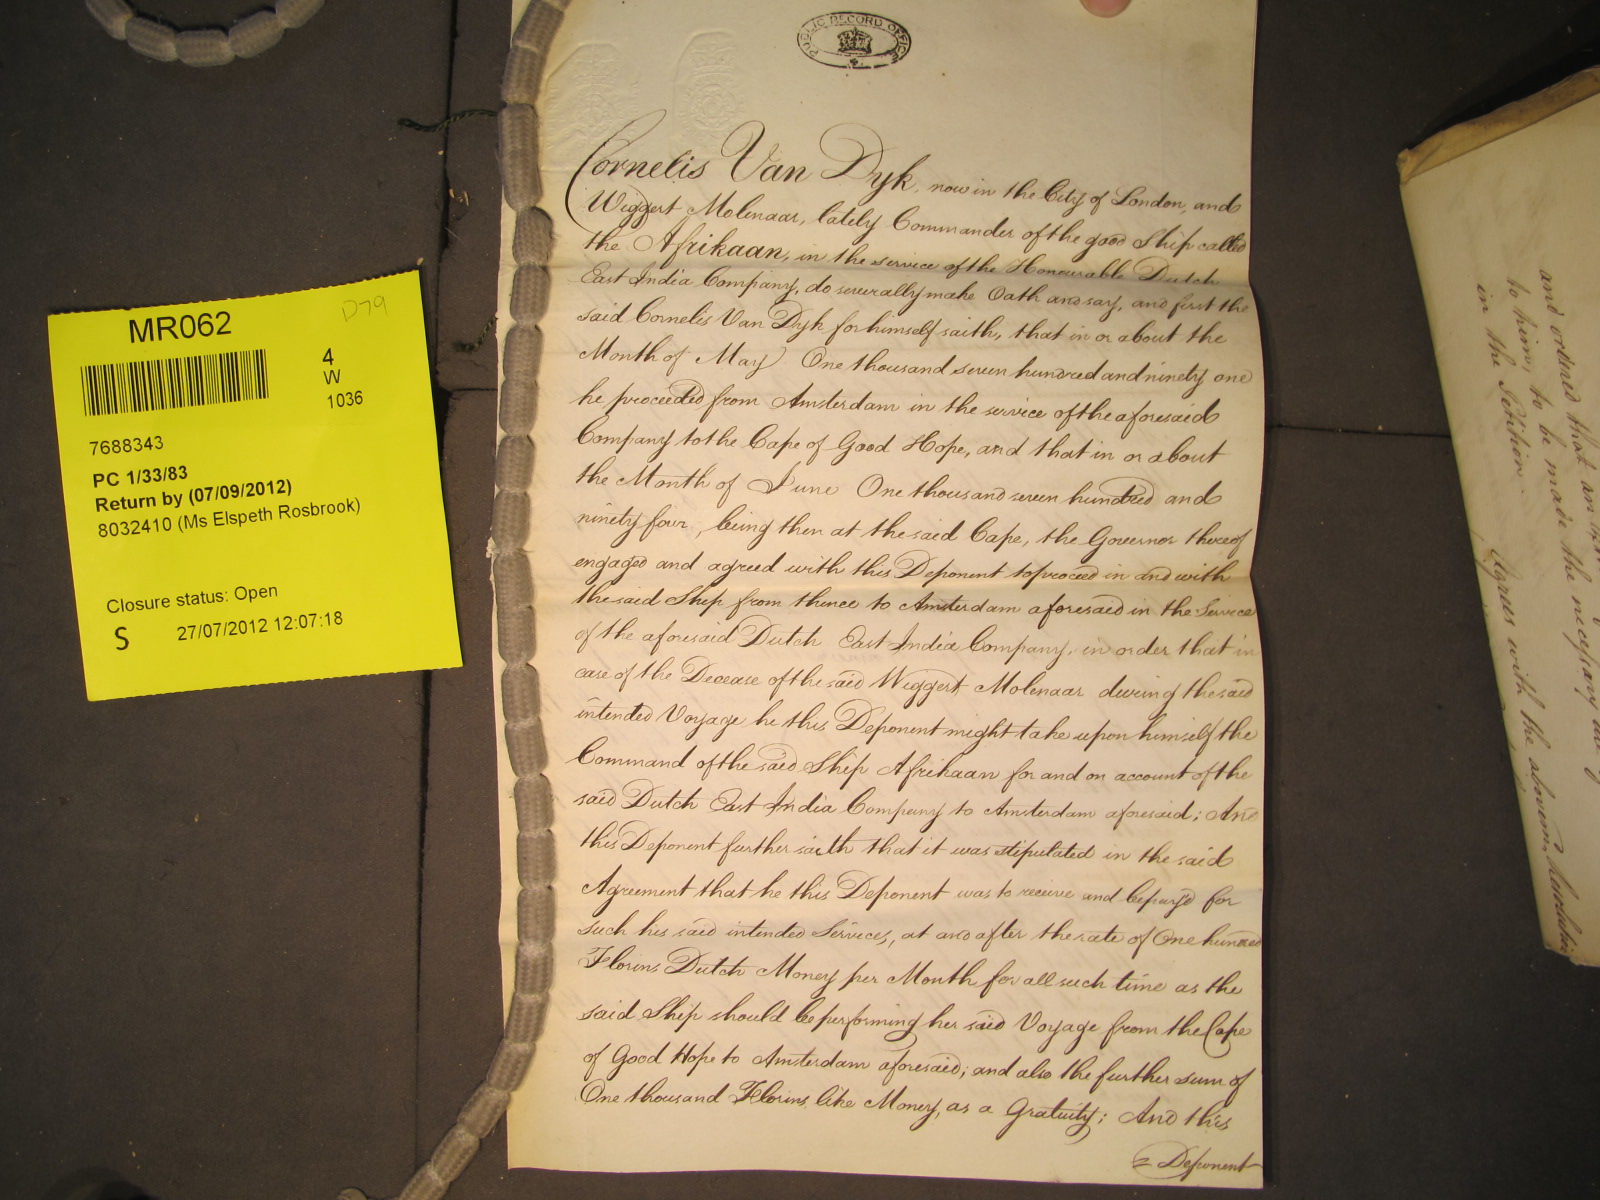 PUBLIC RECORD OFFICE
Cornelis Van Dyk, now in the City of London, and
Wiggert Molenaar, lately Commander of the good Ship called
the Afrikaan, in the service of the Honourable Dutch
East India Company, do severally make Oath and say, and first the
said Cornelis Van Dyk for himself saith, that in or about the
Month of May One thousand seven hundred and ninety one
he proceeded from Amsterdam in the service of the aforesaid
Company to the Cape of Good Hope, and that in or about
the Month of June One thousand seven hundred and
ninety four, being then at the said Cape, the Governor thereof
engaged and agreed with this Deponent to proceed in and with
the said Ship from thence to Amsterdam aforesaid in the Service
of the aforesaid Dutch East India Company, in order that in
case of the Decease of the said Wiggert Molenaar during the said
intended Voyage he this Deponent might take upon himself the
Command of the said Ship Afrikaan for and on account of the
said Dutch East India Company to Amsterdam aforesaid; And
this Deponent further saith that it was stipulated in the said
Agreement that he this Deponent was to receive and be paid for
such his said intended Services, at and after the rate of One hundred
Florins Dutch Money per Month for all such time as the
said Ship should be performing her said Voyage from the Cape
of Good Hope to Amsterdam aforesaid; and also the further sum of
One thousand Florins like Money, as a Gratuity; And this
Deponent
MR062
D79
4
W
1036
7688343
PC 1/33/83
Return by (07/09/2012)
8032410 (Ms Elspeth Rosbrook)
Closure status: Open
S 27/07/2012 12:07:18
and ordered that an
to him, to be made the necessary
in the Petition
Agrees with the above